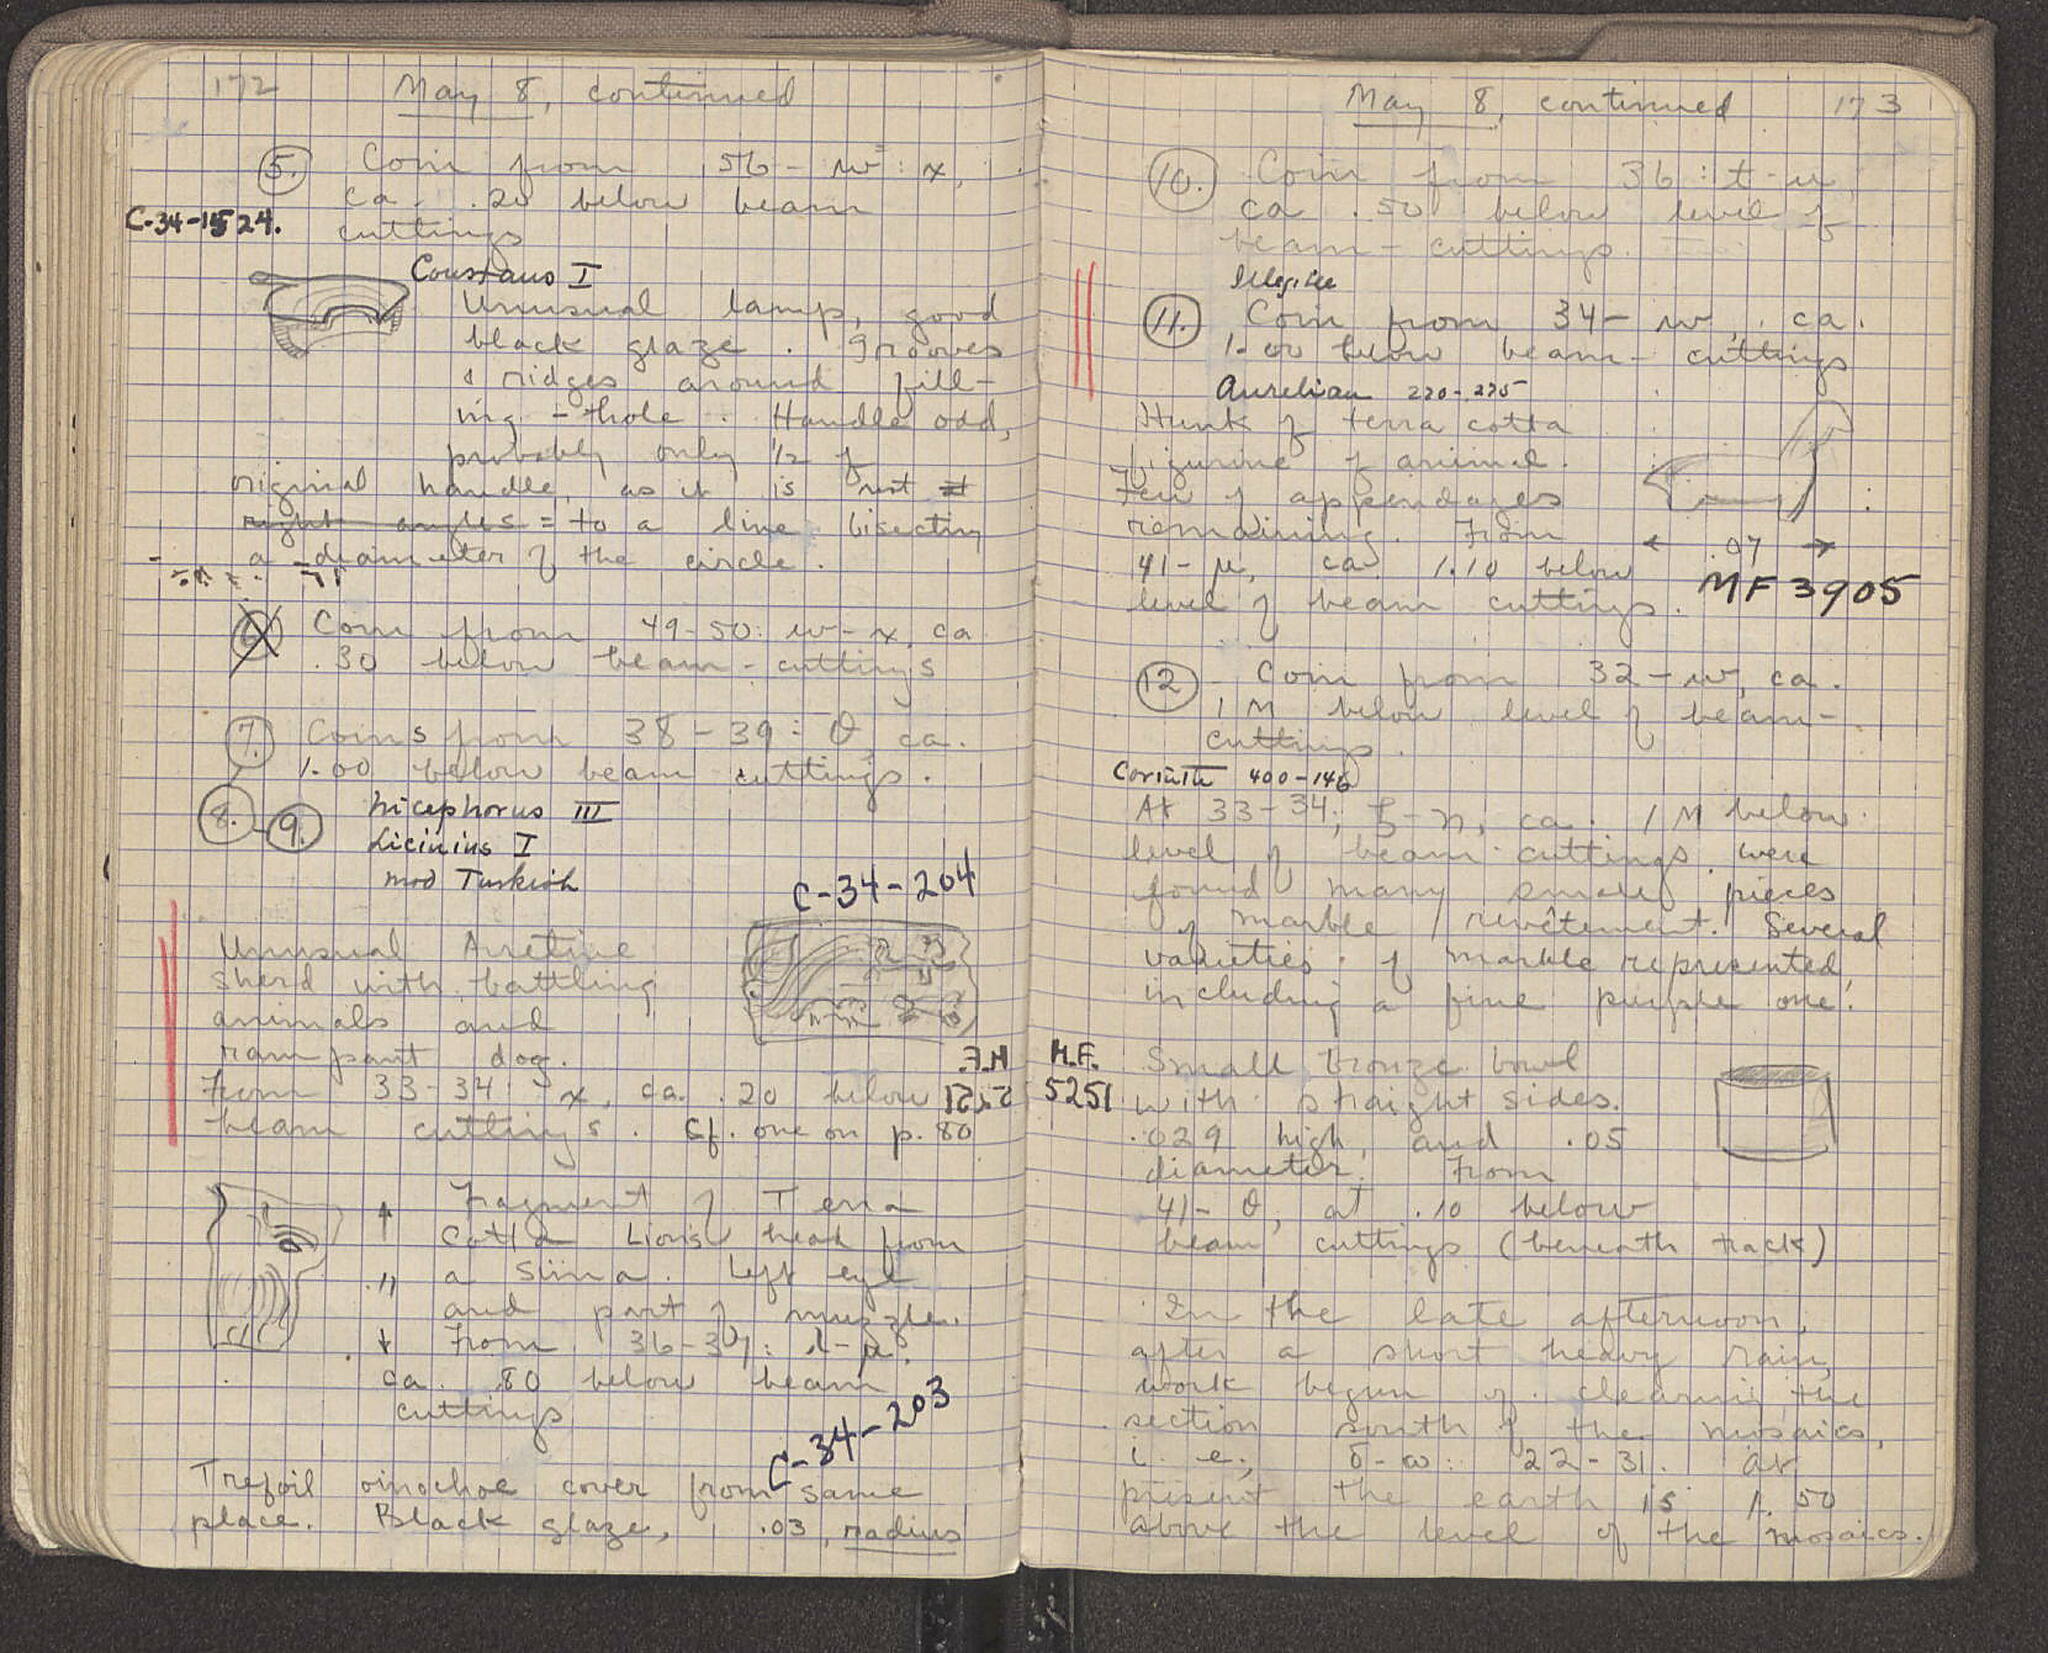 172 May 8, continued
5. Coin from 56 - w : x,
ca. .20 below beam
C-34-1524. cuttings
Constans I
Unusual lamp, good
black glaze. Grooves
& ridges around fill-
ing-hole. Handle odd,
probably only 1/2 of
original handle, as it is not
right angles = to a line bisecting
a diameter of the circle.
6. Coin from 49-50: w-x, ca
.30 below beam-cuttings
7. Coins from 38-39: θ, ca.
1.00 below beam cuttings.
8. - 9. Nicephorus III
Licinius I
mod Turkish
C-34-204
Unusual Arretine
sherd with battling
animals and
rampant dog.
From 33-34: x, ca. .20 below
beam cuttings. Cf. one on p. 80
Fragment of Terra
Cotta Lion's head from
.11 a sima. Left eye
and part of muzzle.
From 36-37: λ-μ,
ca. .80 below beam
cuttings
C-34-203
Trefoil oinochoe cover from same
place. Black glaze, .03, radius
May 8, continued 173
10. Coin from 36: t-u,
ca .50 below level of
beam-cuttings.
Illegible
11. Coin from 34-w, ca.
1.00 below beam-cuttings
Aurelian 270-275
Hunk of terra cotta
figurine of animal.
Few of appendages
remaining. From
.07
41-μ, ca. 1.10 below
MF 3905
level of beam cuttings.
12 Coin from 32-w, ca.
1 M below level of beam-
cuttings.
Corinth 400-146
At 33-34; ζ-η, ca. 1 M below
level of beam-cuttings were
found many small pieces
of marble revêtement. Several
varieties of marble represented,
including a fine purple one.
M.F. Small bronze bowl
5251 with straight sides.
.029 high, and .05
diameter. From
41-θ, at .10 below
beam cuttings (beneath track)
In the late afternoon,
after a short heavy rain,
work begun of clearing the
section south of the mosaics,
i. e., δ-ω: 22-31. At
present the earth is 1.50
above the level of the mosaics.